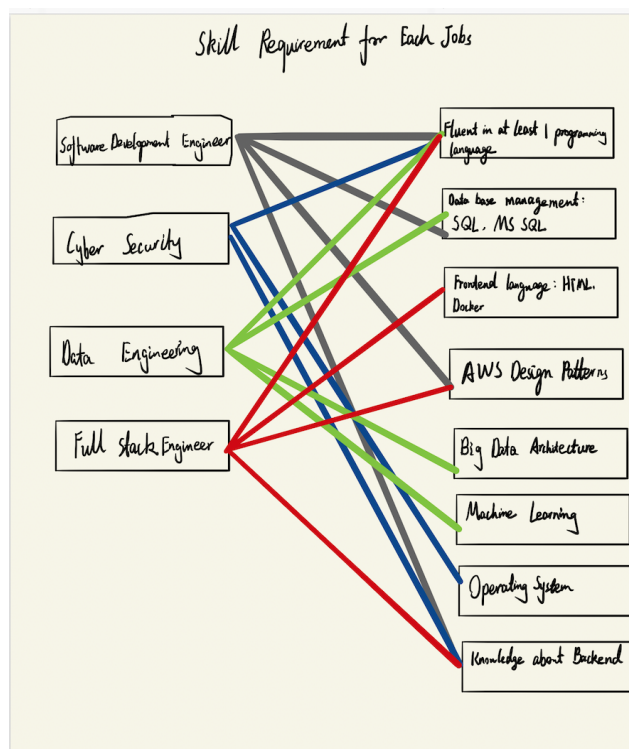 Skill Requirement for Each Jobs
Software Development Engineer
Cyber Security
Data Engineering
Full Stack Engineer
Fluent in at least 1 programming
language
Data base management:
SQL, MS SQL
Frontend language: HTML,
Docker
AWS Design Patterns
Big Data Architecture
Machine Learning
Operating System
Knowledge about Backend